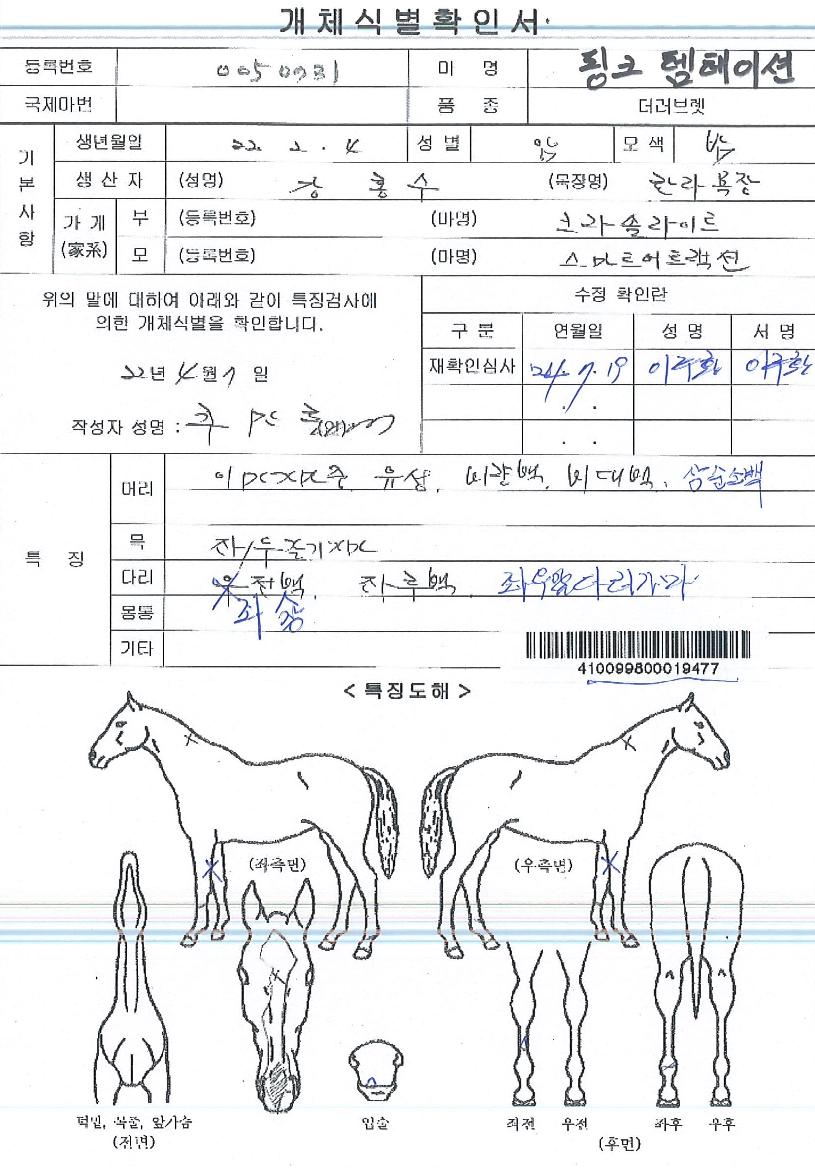 개체식별확인서
등록번호 0050931 마 명 핑크 템테이션
국제마번 품 종 더러브렛
기본사항
생년월일 22. 2. 4 성별 암 모색 밤
생 산 자 (성명) 강홍수 (목장명) 한라목장
가 계 (家系) 부 (등록번호) (마명) 코라솔라이트
모 (등록번호) (마명) 스마트어트랙션
위의 말에 대하여 아래와 같이 특징검사에
의한 개체식별을 확인합니다.
22년 4월 7일
작성자 성명 :
수정 확인란
구 분 연월일 성 명 서 명
재확인심사 '24. 7. 19
. .
. .
특 징
머리 유성, 비량백, 비대백,
목 좌/우 줄기
다리 전백, 좌후백,
몽통
기타
410099800019477
< 특징도해 >
(좌측면) (우측면)
턱밑, 목줄, 앞가슴 입술 좌전 우전 좌후 우후
(전면) (후면)